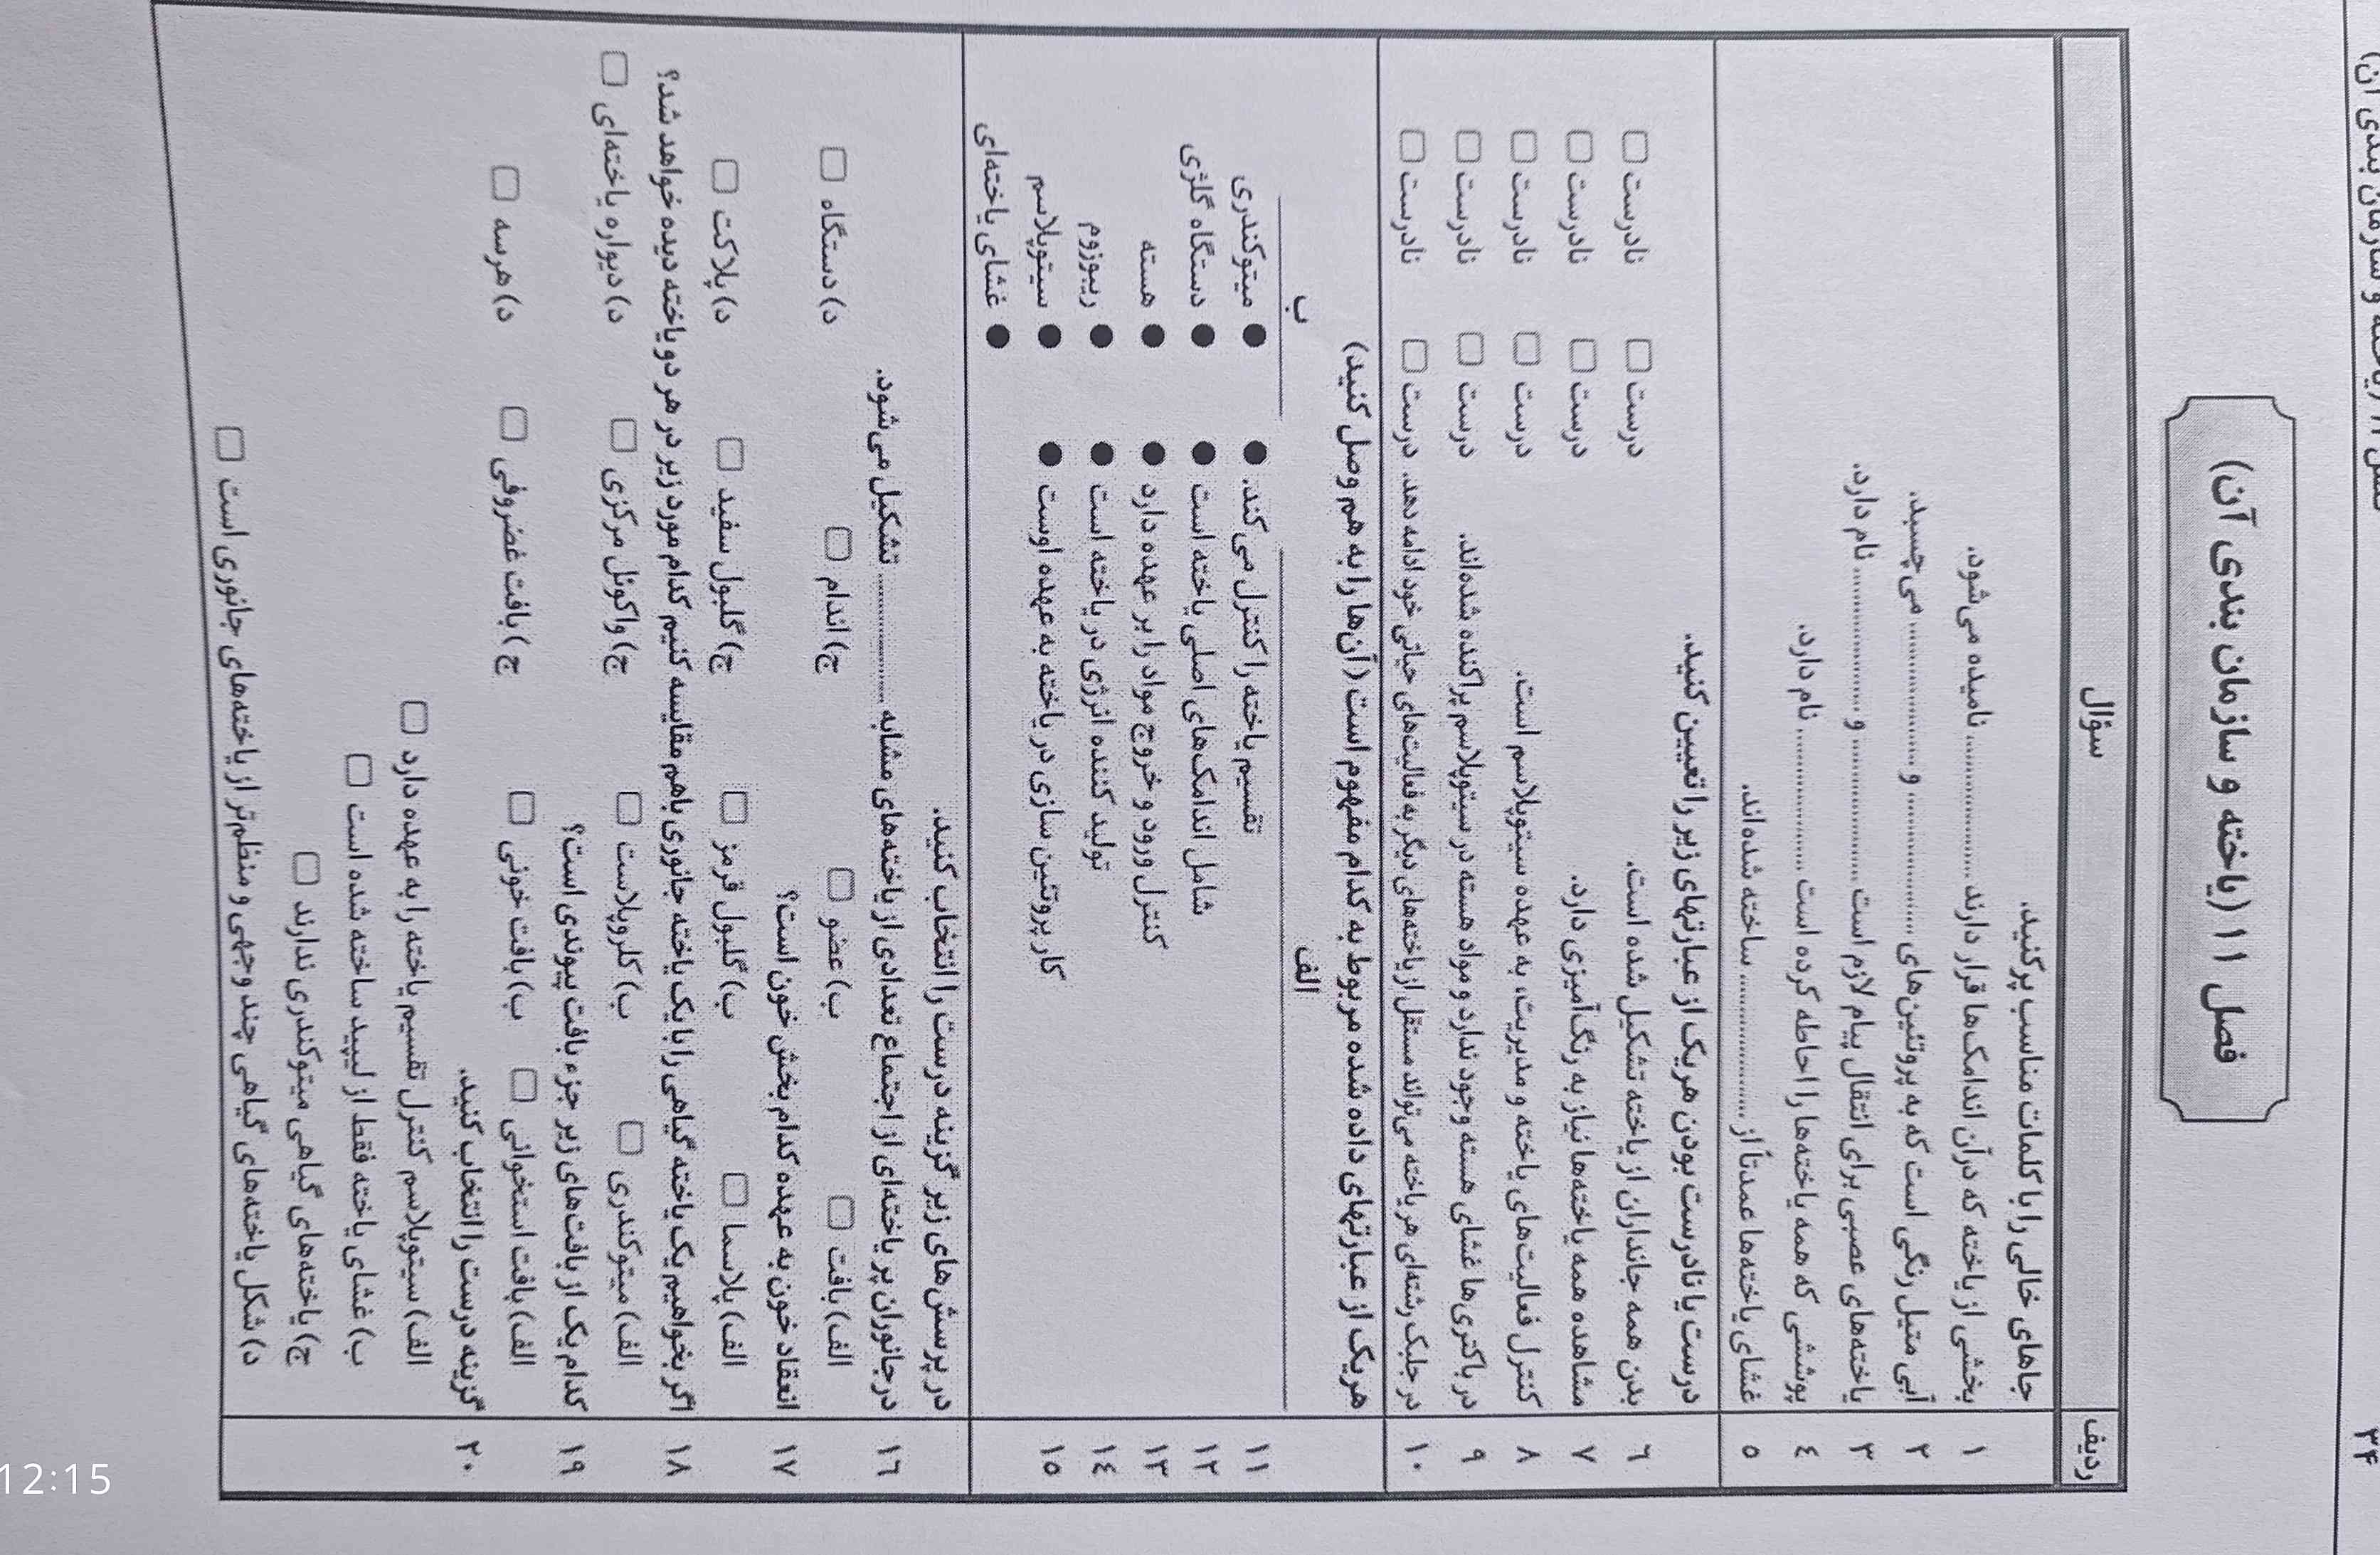 ۳۴
فصل ۱۱ (یاخته و سازمان بندی آن)
فصل ۱۱ (یاخته و سازمان بندی آن)
ردیف سؤال
جاهای خالی را با کلمات مناسب پر کنید.
۱ بخشی از یاخته که در آن اندامک‌ها قرار دارند .................. نامیده می‌شود.
۲ آبی متیل رنگی است که به پروتئین‌های .................. و .................. می‌چسبد.
۳ یاخته‌های عصبی برای انتقال پیام لازم است .................. و .................. نام دارد.
۴ پوششی که همه یاخته‌ها را احاطه کرده است .................. نام دارد.
۵ غشای یاخته‌ها عمدتاً از .................. ساخته شده‌اند.
درست یا نادرست بودن هر یک از عبارتهای زیر را تعیین کنید.
۶ بدن همه جانداران از یاخته تشکیل شده است. درست □ نادرست □
۷ مشاهده همه یاخته‌ها نیاز به رنگ‌آمیزی دارد. درست □ نادرست □
۸ کنترل فعالیت‌های یاخته و مدیریت، به عهده سیتوپلاسم است. درست □ نادرست □
۹ در باکتری‌ها غشای هسته وجود ندارد و مواد هسته در سیتوپلاسم پراکنده شده‌اند. درست □ نادرست □
۱۰ در جلبک رشته‌ای هر یاخته می‌تواند مستقل از یاخته‌های دیگر به فعالیت‌های حیاتی خود ادامه دهد. درست □ نادرست □
هر یک از عبارتهای داده شده مربوط به کدام مفهوم است (آن‌ها را به هم وصل کنید)
الف ب
۱۱ تقسیم یاخته را کنترل می‌کند. ● ● میتوکندری
۱۲ شامل اندامک‌های اصلی یاخته است ● ● دستگاه گلژی
۱۳ کنترل ورود و خروج مواد را بر عهده دارد ● ● هسته
۱۴ تولید کننده انرژی در یاخته است ● ● ریبوزوم
۱۵ کار پروتئین سازی در یاخته به عهده اوست ● ● سیتوپلاسم
● غشای یاخته‌ای
در پرسش‌های زیر گزینه درست را انتخاب کنید.
۱۶ در جانوران پر یاخته‌ای از اجتماع تعدادی از یاخته‌های مشابه .................. تشکیل می‌شود.
الف) بافت □ ب) عضو □ ج) اندام □ د) دستگاه □
۱۷ انعقاد خون به عهده کدام بخش خون است؟
الف) پلاسما □ ب) گلبول قرمز □ ج) گلبول سفید □ د) پلاکت □
۱۸ اگر بخواهیم یک یاخته گیاهی را با یک یاخته جانوری باهم مقایسه کنیم کدام مورد زیر در هر دو یاخته دیده خواهد شد؟
الف) میتوکندری □ ب) کلروپلاست □ ج) واکوئل مرکزی □ د) دیواره یاخته‌ای □
۱۹ کدام یک از بافت‌های زیر جزء بافت پیوندی است؟
الف) بافت استخوانی □ ب) بافت خونی □ ج) بافت غضروفی □ د) هرسه □
۲۰ گزینه درست را انتخاب کنید.
الف) سیتوپلاسم کنترل تقسیم یاخته را به عهده دارد □
ب) غشای یاخته فقط از لیپید ساخته شده است □
ج) یاخته‌های گیاهی میتوکندری ندارند □
د) شکل یاخته‌های گیاهی چند وجهی و منظم‌تر از یاخته‌های جانوری است □
12:15